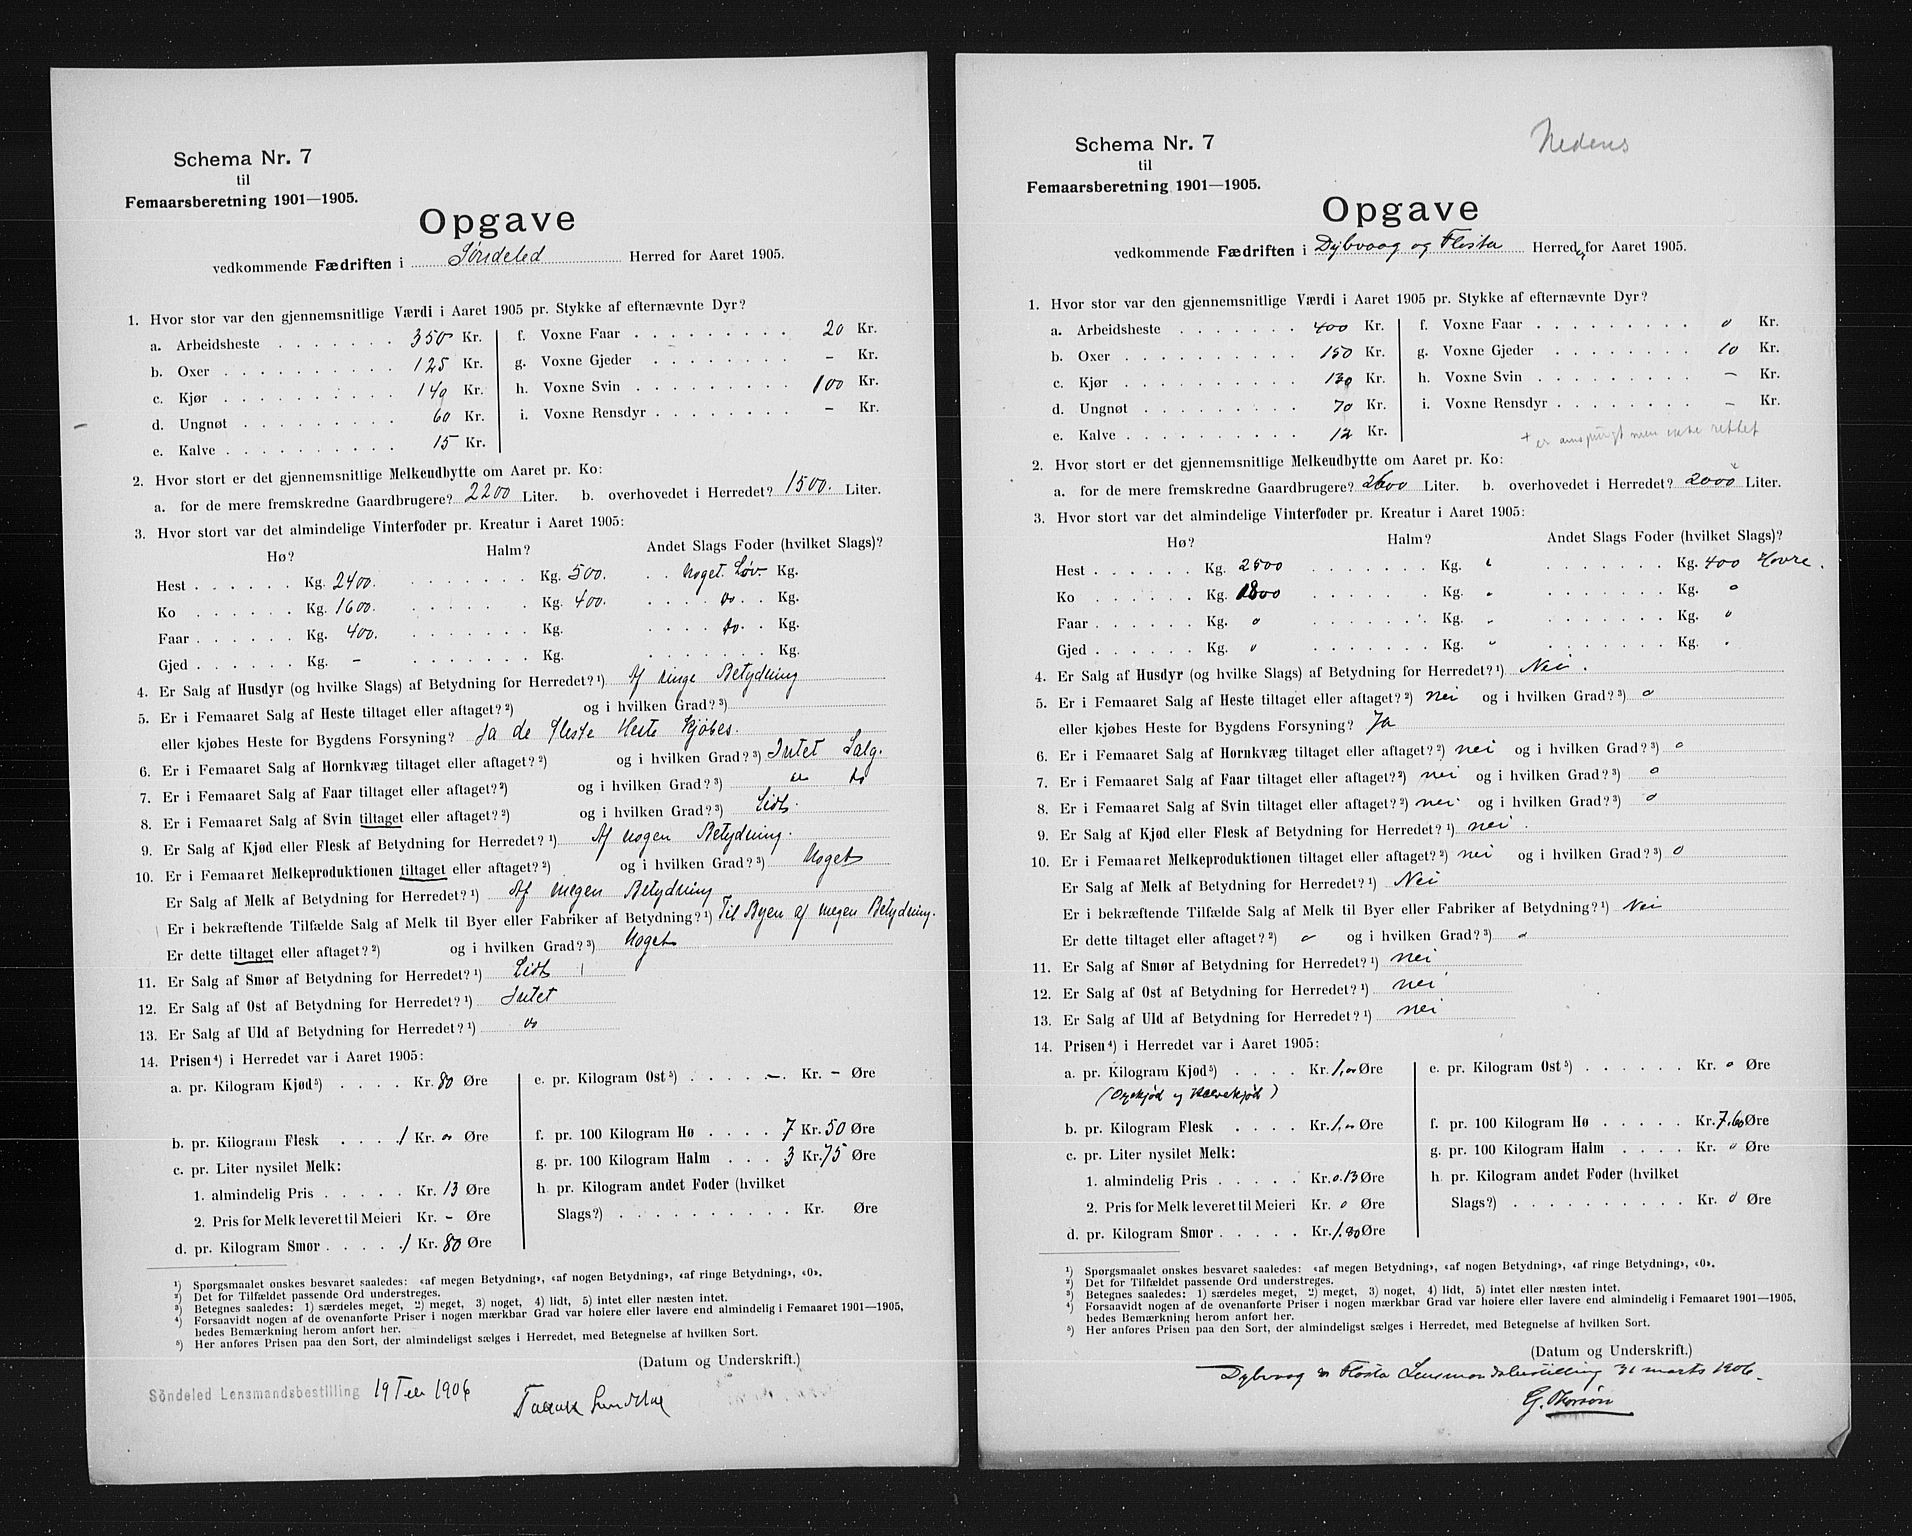 Schema Nr. 7
til
Femaarsberetning 1901—1905.
Opgave
vedkommende Fædriften i Søndeled Herred for Aaret 1905.
1. Hvor stor var den gjennemsnitlige Værdi i Aaret 1905 pr. Stykke af efternævnte Dyr?
a. Arbeidsheste . . . . . . . 350 Kr.
b. Oxer . . . . . . . . . . 125 Kr.
c. Kjør . . . . . . . . . . 140 Kr.
d. Ungnøt . . . . . . . . . 60 Kr.
e. Kalve . . . . . . . . . . 15 Kr.
f. Voxne Faar . . . . . . . . . 20 Kr.
g. Voxne Gjeder . . . . . . . . – Kr.
h. Voxne Svin . . . . . . . . . 100 Kr.
i. Voxne Rensdyr . . . . . . . – Kr.
2. Hvor stort er det gjennemsnitlige Melkeudbytte om Aaret pr. Ko:
a. for de mere fremskredne Gaardbrugere? 2200 Liter. b. overhovedet i Herredet? 1500. Liter.
3. Hvor stort var det almindelige Vinterfoder pr. Kreatur i Aaret 1905:
Hø? Halm? Andet Slags Foder (hvilket Slags)?
Hest . . . . . . Kg. 2400. . . . . . . . Kg. 500. . . Noget Løv. Kg.
Ko . . . . . . . Kg. 1600. . . . . . . . Kg. 400. . . . . do . . Kg.
Faar . . . . . . Kg. 400. . . . . . . . Kg. . . . . do. . . Kg.
Gjed . . . . . . Kg. – . . . . . . . . Kg. . . . . . . . . Kg.
4. Er Salg af Husdyr (og hvilke Slags) af Betydning for Herredet?¹) Af ringe Betydning
5. Er i Femaaret Salg af Heste tiltaget eller aftaget?²) og i hvilken Grad?³)
eller kjøbes Heste for Bygdens Forsyning? Ja de fleste Heste kjøbes.
6. Er i Femaaret Salg af Hornkvæg tiltaget eller aftaget?²) og i hvilken Grad?³) Intet Salg.
7. Er i Femaaret Salg af Faar tiltaget eller aftaget?²) og i hvilken Grad?³) do do
8. Er i Femaaret Salg af Svin tiltaget eller aftaget?²) og i hvilken Grad?³) Lidt.
9. Er Salg af Kjød eller Flesk af Betydning for Herredet?¹) Af nogen Betydning.
10. Er i Femaaret Melkeproduktionen tiltaget eller aftaget?²) og i hvilken Grad?³) Noget
Er Salg af Melk af Betydning for Herredet?¹) Af megen Betydning
Er i bekræftende Tilfælde Salg af Melk til Byer eller Fabriker af Betydning?¹) Til Byen af megen Betydning.
Er dette tiltaget eller aftaget?²) og i hvilken Grad?³) Noget
11. Er Salg af Smør af Betydning for Herredet?¹) Lidt
12. Er Salg af Ost af Betydning for Herredet?¹) Intet
13. Er Salg af Uld af Betydning for Herredet?¹) do
14. Prisen⁴) i Herredet var i Aaret 1905:
a. pr. Kilogram Kjød⁵) . . . . Kr. 80 Øre
b. pr. Kilogram Flesk . . . . 1 Kr. 00 Øre
c. pr. Liter nysilet Melk:
1. almindelig Pris . . . . . Kr. 13 Øre
2. Pris for Melk leveret til Meieri Kr. – Øre
d. pr. Kilogram Smør . . . . . 1 Kr. 80 Øre
e. pr. Kilogram Ost⁵) . . . . . – Kr. – Øre
f. pr. 100 Kilogram Hø . . . . 7 Kr. 50 Øre
g. pr. 100 Kilogram Halm . . . 3 Kr. 75 Øre
h. pr. Kilogram andet Foder (hvilket
Slags?) . . . . . . . . . . Kr. Øre
¹) Spørgsmaalet ønskes besvaret saaledes: «af megen Betydning», «af nogen Betydning», «af ringe Betydning», «0».
²) Det for Tilfældet passende Ord understreges.
³) Betegnes saaledes: 1) særdeles meget, 2) meget, 3) noget, 4) lidt, 5) intet eller næsten intet.
⁴) Forsaavidt nogen af de ovenanførte Priser i nogen mærkbar Grad var høiere eller lavere end almindelig i Femaaret 1901—1905,
bedes Bemærkning herom anført her.
⁵) Her anføres Prisen paa den Sort, der almindeligst sælges i Herredet, med Betegnelse af hvilken Sort.
(Datum og Underskrift.)
Söndeled Lensmandsbestilling 19 Feb 1906
Schema Nr. 7
til
Femaarsberetning 1901—1905.
Nedenes
Opgave
vedkommende Fædriften i Dybvaag og Flosta Herreder for Aaret 1905.
1. Hvor stor var den gjennemsnitlige Værdi i Aaret 1905 pr. Stykke af efternævnte Dyr?
a. Arbeidsheste . . . . . . . 400 Kr.
b. Oxer . . . . . . . . . . 150 Kr.
c. Kjør . . . . . . . . . . 130 Kr.
d. Ungnøt . . . . . . . . . 70 Kr.
e. Kalve . . . . . . . . . . 12 Kr.
f. Voxne Faar . . . . . . . . . 0 Kr.
g. Voxne Gjeder . . . . . . . . 10 Kr.
h. Voxne Svin . . . . . . . . . – Kr.
i. Voxne Rensdyr . . . . . . . – Kr.
+ er anspurgt men ikke rettet
2. Hvor stort er det gjennemsnitlige Melkeudbytte om Aaret pr. Ko:
a. for de mere fremskredne Gaardbrugere? 2600 Liter. b. overhovedet i Herredet? 2000 Liter.
3. Hvor stort var det almindelige Vinterfoder pr. Kreatur i Aaret 1905:
Hø? Halm? Andet Slags Foder (hvilket Slags)?
Hest . . . . . . Kg. 2500 . . . . . . . Kg. " . . . . . . . Kg. 400 Havre.
Ko . . . . . . . Kg. 1800 . . . . . . . Kg. " . . . . . . . Kg. 0
Faar . . . . . . Kg. 0 . . . . . . . Kg. " . . . . . . . Kg. 0
Gjed . . . . . . Kg. 0 . . . . . . . Kg. " . . . . . . . Kg. "
4. Er Salg af Husdyr (og hvilke Slags) af Betydning for Herredet?¹) Nei.
5. Er i Femaaret Salg af Heste tiltaget eller aftaget?²) nei og i hvilken Grad?³) 0
eller kjøbes Heste for Bygdens Forsyning? Ja
6. Er i Femaaret Salg af Hornkvæg tiltaget eller aftaget?²) nei og i hvilken Grad?³) 0
7. Er i Femaaret Salg af Faar tiltaget eller aftaget?²) nei og i hvilken Grad?³) 0
8. Er i Femaaret Salg af Svin tiltaget eller aftaget?²) nei og i hvilken Grad?³) 0
9. Er Salg af Kjød eller Flesk af Betydning for Herredet?¹) nei.
10. Er i Femaaret Melkeproduktionen tiltaget eller aftaget?²) nei og i hvilken Grad?³) 0
Er Salg af Melk af Betydning for Herredet?¹) Nei
Er i bekræftende Tilfælde Salg af Melk til Byer eller Fabriker af Betydning?¹) Nei
Er dette tiltaget eller aftaget?²) 0 og i hvilken Grad?³) 0
11. Er Salg af Smør af Betydning for Herredet?¹) nei
12. Er Salg af Ost af Betydning for Herredet?¹) nei
13. Er Salg af Uld af Betydning for Herredet?¹) nei
14. Prisen⁴) i Herredet var i Aaret 1905:
a. pr. Kilogram Kjød⁵) . . . . Kr. 1,00 Øre
(Oxekjød og Kalvekjød)
b. pr. Kilogram Flesk . . . . Kr. 1.00 Øre
c. pr. Liter nysilet Melk:
1. almindelig Pris . . . . . Kr. 0.13 Øre
2. Pris for Melk leveret til Meieri Kr. 0 Øre
d. pr. Kilogram Smør . . . . . Kr. 1.80 Øre
e. pr. Kilogram Ost⁵) . . . . . . Kr. 0 Øre
f. pr. 100 Kilogram Hø . . . . . Kr. 7.60 Øre
g. pr. 100 Kilogram Halm . . . . Kr. 0 Øre
h. pr. Kilogram andet Foder (hvilket
Slags?) . . . . . . . . . . Kr. 0 Øre
¹) Spørgsmaalet ønskes besvaret saaledes: «af megen Betydning», «af nogen Betydning», «af ringe Betydning», «0».
²) Det for Tilfældet passende Ord understreges.
³) Betegnes saaledes: 1) særdeles meget, 2) meget, 3) noget, 4) lidt, 5) intet eller næsten intet.
⁴) Forsaavidt nogen af de ovenanførte Priser i nogen mærkbar Grad var høiere eller lavere end almindelig i Femaaret 1901—1905,
bedes Bemærkning herom anført her.
⁵) Her anføres Prisen paa den Sort, der almindeligst sælges i Herredet, med Betegnelse af hvilken Sort.
(Datum og Underskrift.)
Dybvaag og Flosta Lensmandsbestilling 31 marts 1906.